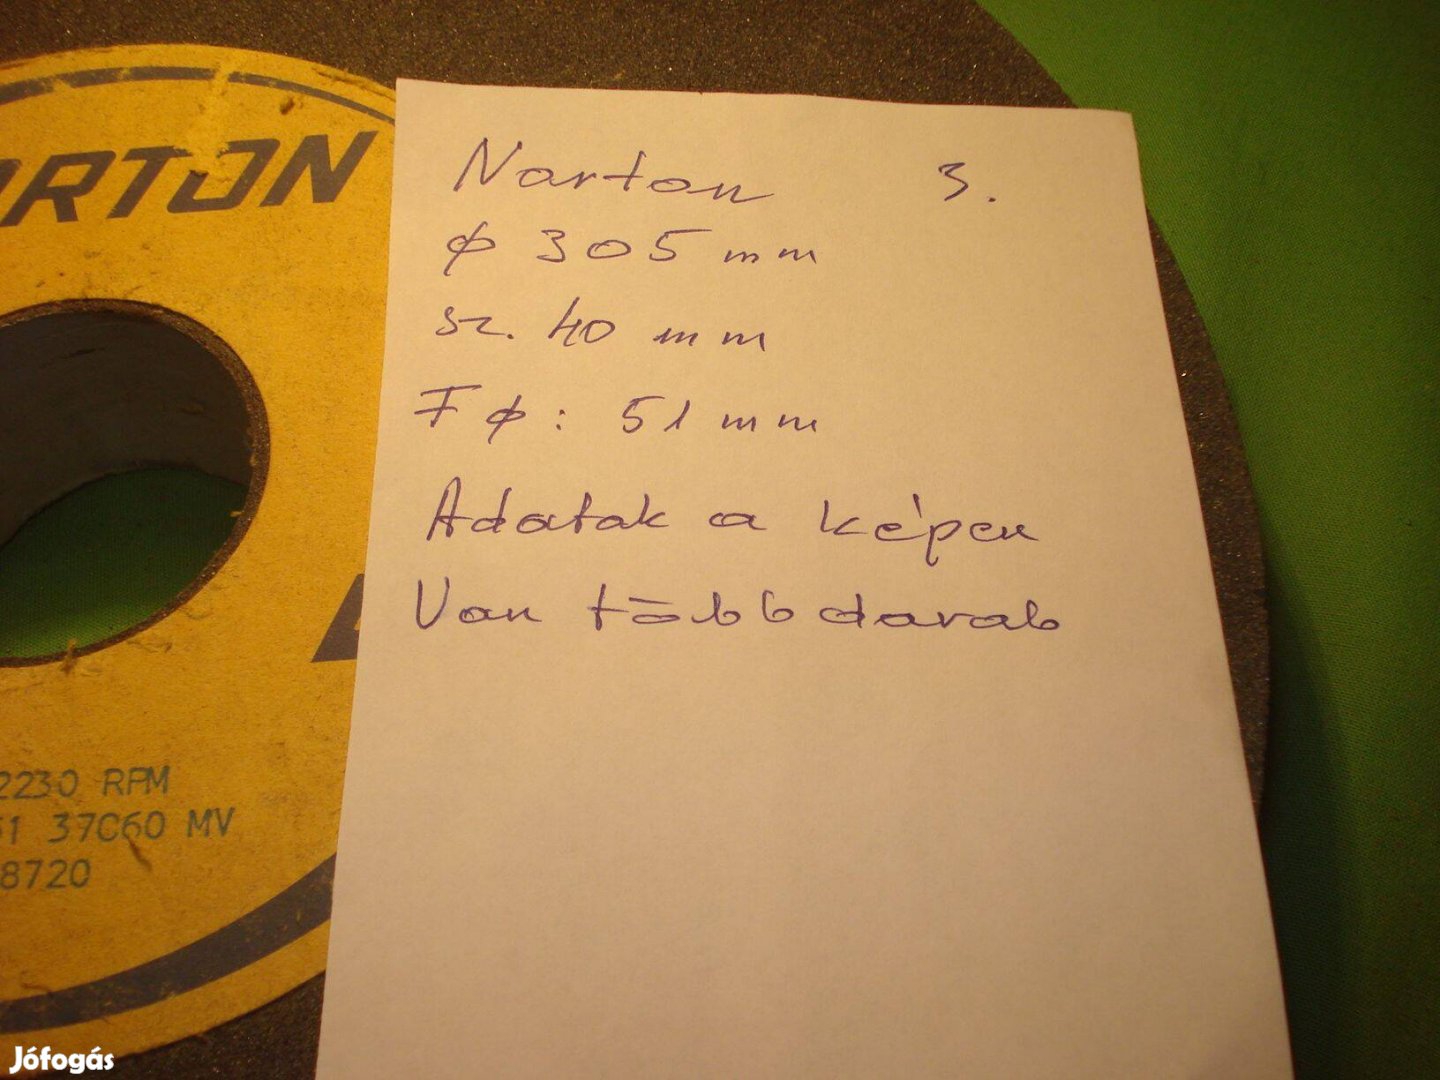 ORTON
Norton 3.
φ 305 mm
sz. 40 mm
F φ: 51 mm
Adatok a képen
Van több darab
2230 RPM
51 37C60 MV
8720
Jófogás